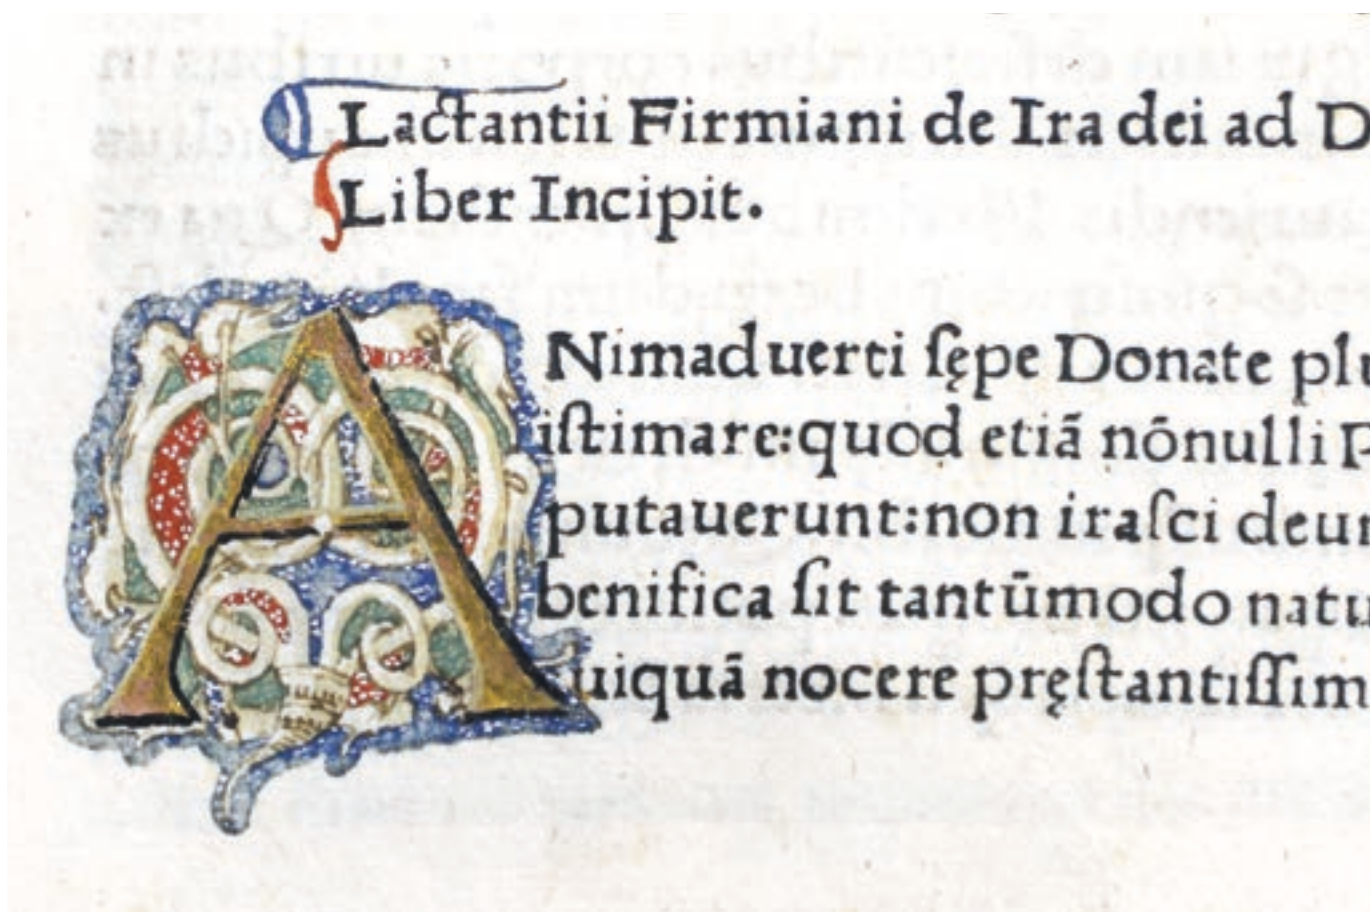 Lactantii Firmiani de Ira dei ad D
Liber Incipit.
ANimaduerti ſępe Donate plu
iſtimare:quod etiã nōnulli P
putauerunt:non iraſci deum
benifica ſit tantūmodo natu
uiquã nocere pręſtantiſſim